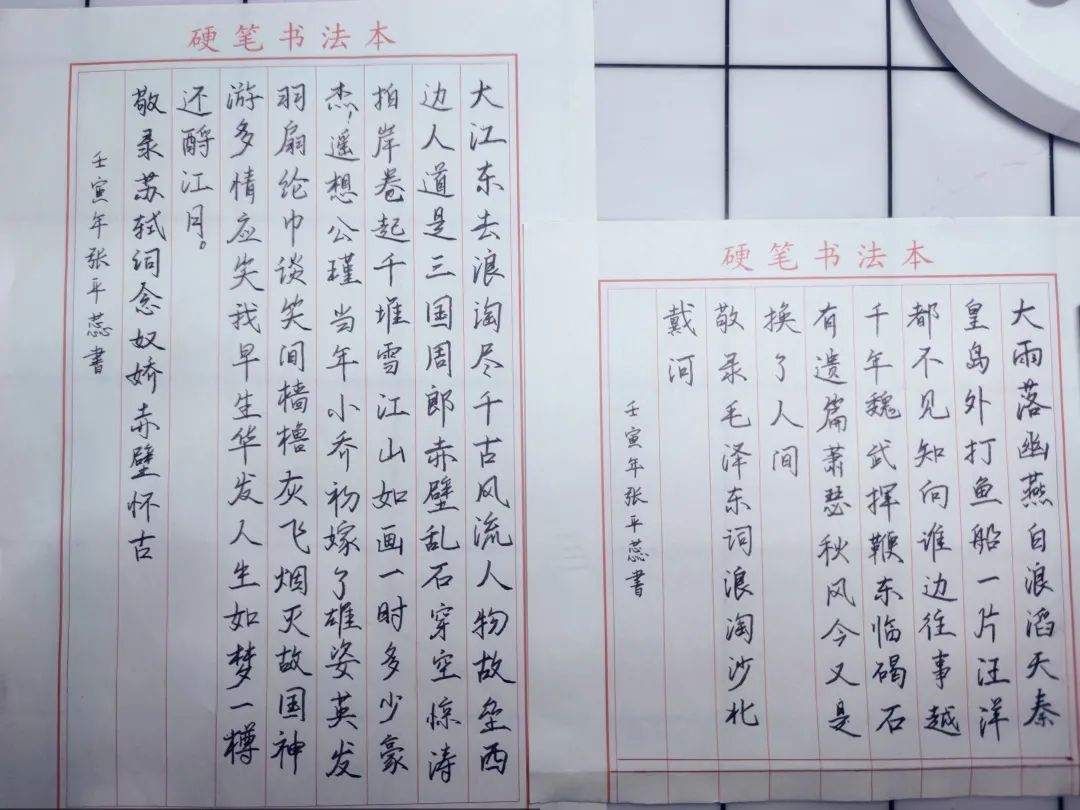 硬笔书法本
大江东去浪淘尽千古风流人物故垒西
边人道是三国周郎赤壁乱石穿空惊涛
拍岸卷起千堆雪江山如画一时多少豪
杰，遥想公瑾当年小乔初嫁了雄姿英发
羽扇纶巾谈笑间樯橹灰飞烟灭故国神
游多情应笑我早生华发人生如梦一樽
还酹江月。
敬录苏轼词念奴娇赤壁怀古
壬寅年张平蕊书
硬笔书法本
大雨落幽燕白浪滔天秦
皇岛外打鱼船一片汪洋
都不见知向谁边往事越
千年魏武挥鞭东临碣石
有遗篇萧瑟秋风今又是
换了人间
敬录毛泽东词浪淘沙北
戴河
壬寅年张平蕊書